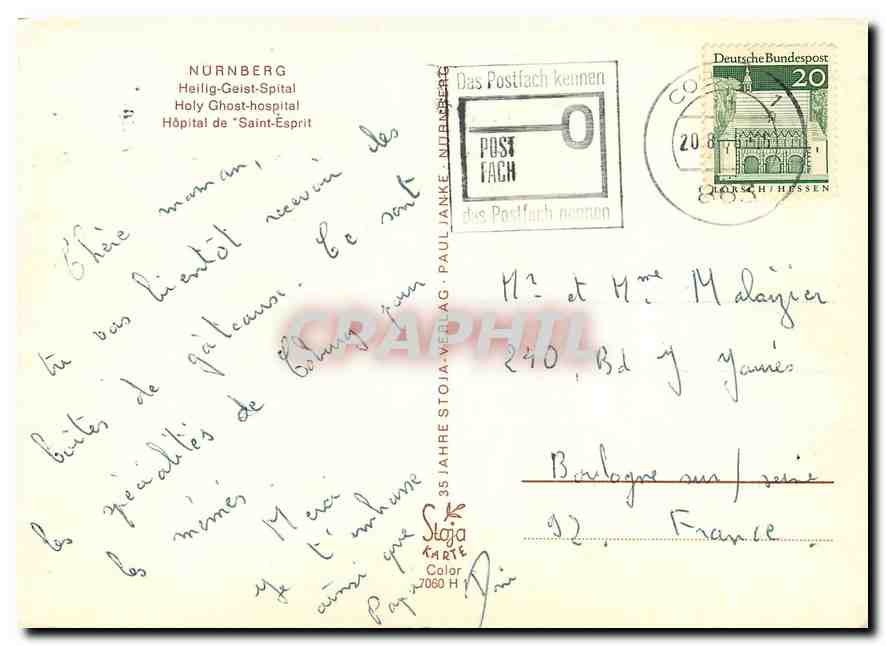 NÜRNBERG
Heilig-Geist-Spital
Holy Ghost-hospital
Hôpital de "Saint-Esprit
Chère maman,
tu vas bientôt recevoir des
boîtes de gâteaux. Ce sont
les spécialités de Coburg pour
les mémés. Merci
Je t'embrasse
ainsi que
Papa
35 JAHRE STOJA-VERLAG · PAUL JANKE · NÜRNBERG
Stoja
KARTE
Color
7060 H
Das Postfach kennen
POST
FACH
das Postfach nennen
20.8.
863
Deutsche Bundespost
20
LORSCH/HESSEN
Mr et Mme Malaizier
240, Bd J Jaurès
Boulogne sur/seine
92. France.
CPAPHIL